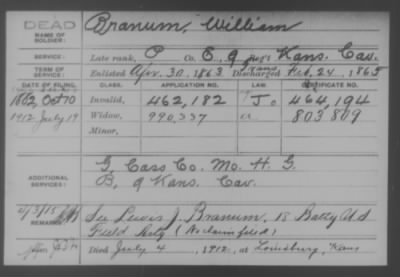 DEAD
NAME OF SOLDIER:
Branum, William
SERVICE:
Late rank, P Co. E, 9 Reg't Kans. Cav.
TERM OF SERVICE:
Enlisted Apr. 30, 1863 Discharged Feb. 24, 1865
DATE OF FILING.
CLASS.
APPLICATION NO.
LAW.
CERTIFICATE NO.
Oct 70
Invalid,
462,182
J.
464,194
1912 July 19
Widow,
990,337
803809
Minor,
ADDITIONAL SERVICES:
G, Cass Co. Mo. H. G.
B, 9 Kans. Cav.
REMARKS:
See Lewis J. Branum, 18 Batty U.S.
Field Arty (No claim filed)
Died July 4, 1912, at Louisburg, Kans